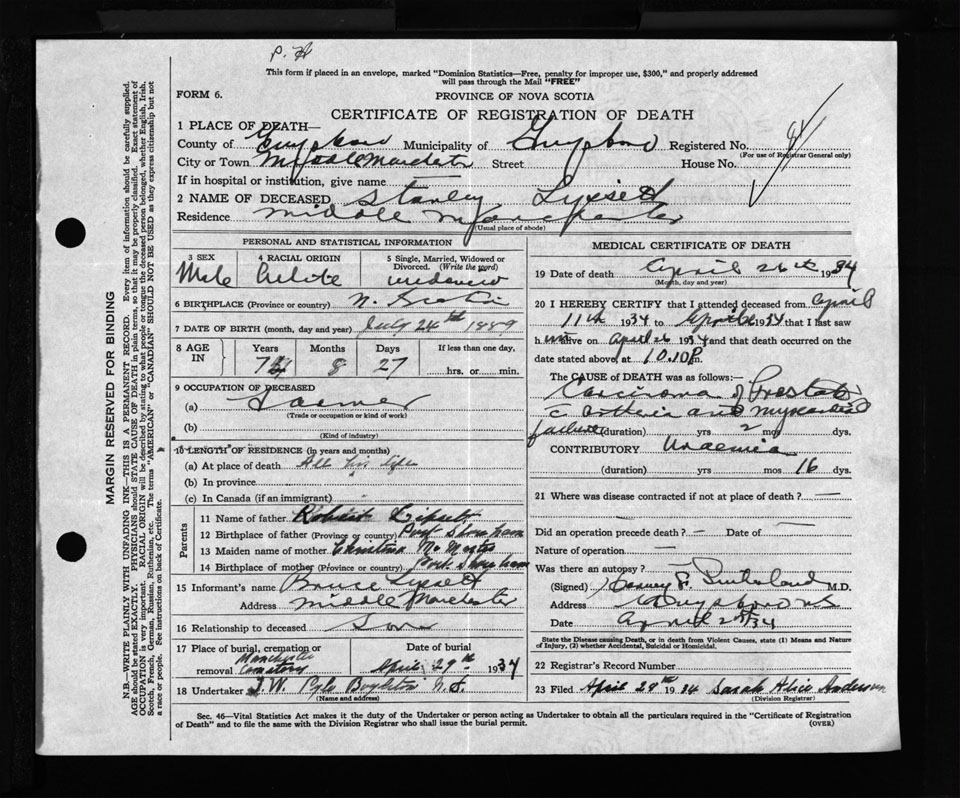 This form if placed in an envelope, marked "Dominion Statistics—Free, penalty for improper use, $300," and properly addressed
will pass through the Mail "FREE"
FORM 6.
PROVINCE OF NOVA SCOTIA
CERTIFICATE OF REGISTRATION OF DEATH
1 PLACE OF DEATH—
County of Guysboro Municipality of Guysboro Registered No.
(For use of Registrar General only)
City or Town Middle Manchester Street House No.
If in hospital or institution, give name
2 NAME OF DECEASED Stanley Lipsett
Residence Middle Manchester
(Usual place of abode)
MARGIN RESERVED FOR BINDING
N.B.—WRITE PLAINLY WITH UNFADING INK—THIS IS A PERMANENT RECORD. Every item of information should be carefully supplied.
AGE should be stated EXACTLY. PHYSICIANS should STATE CAUSE OF DEATH in plain terms, so that it may be properly classified. Exact statement of
OCCUPATION is very important. RACIAL ORIGIN will be described by stating to what people or tongue the deceased person belonged, whether English, Irish,
Scotch, French, German, Russian, Ruthenian, etc. The terms "AMERICAN" or "CANADIAN" SHOULD NOT BE USED as they express citizenship but not
a race or people. See instructions on back of Certificate.
PERSONAL AND STATISTICAL INFORMATION
3 SEX 4 RACIAL ORIGIN 5 Single, Married, Widowed or
Divorced. (Write the word)
Male White widower
6 BIRTHPLACE (Province or country) N. Scotia
7 DATE OF BIRTH (month, day and year) July 24th 1889
8 AGE IN Years Months Days If less than one day,
8 27 hrs. or min.
9 OCCUPATION OF DECEASED
(a) Farmer
(Trade or occupation or kind of work)
(b)
(Kind of industry)
10 LENGTH OF RESIDENCE (in years and months)
(a) At place of death All his life
(b) In province
(c) In Canada (if an immigrant)
Parents
11 Name of father Robert Lipsett
12 Birthplace of father (Province or country) Port Shoreham
13 Maiden name of mother Christina McMaster
14 Birthplace of mother (Province or country) Port Shoreham
15 Informant's name Bruce Lipsett
Address Middle Manchester
16 Relationship to deceased Son
17 Place of burial, cremation or removal Manchester Cemetery
Date of burial April 29th 1934
18 Undertaker J. W. Boylston N.S.
(Name and address)
MEDICAL CERTIFICATE OF DEATH
19 Date of death April 26th 1934
(Month, day and year)
20 I HEREBY CERTIFY that I attended deceased from April
11th 1934 to April 26 1934 that I last saw
him alive on April 26 1934 and that death occurred on the
date stated above, at 10.10 P.
The CAUSE OF DEATH was as follows:—
Carcinoma of Prostate
and myocardial
failure (duration) yrs 2 mos dys.
CONTRIBUTORY Uraemia
(duration) yrs mos 16 dys.
21 Where was disease contracted if not at place of death? —
Did an operation precede death? — Date of —
Nature of operation —
Was there an autopsy?
(Signed) F. Sutherland M.D.
Address Guysboro N.S.
Date April 34
State the Disease causing Death, or in death from Violent Causes, state (1) Means and Nature
of Injury, (2) whether Accidental, Suicidal or Homicidal.
22 Registrar's Record Number
23 Filed April 29th 1934 Sarah Alice Anderson
(Division Registrar)
Sec. 46—Vital Statistics Act makes it the duty of the Undertaker or person acting as Undertaker to obtain all the particulars required in the "Certificate of Registration
of Death" and to file the same with the Division Registrar who shall issue the burial permit. (OVER)